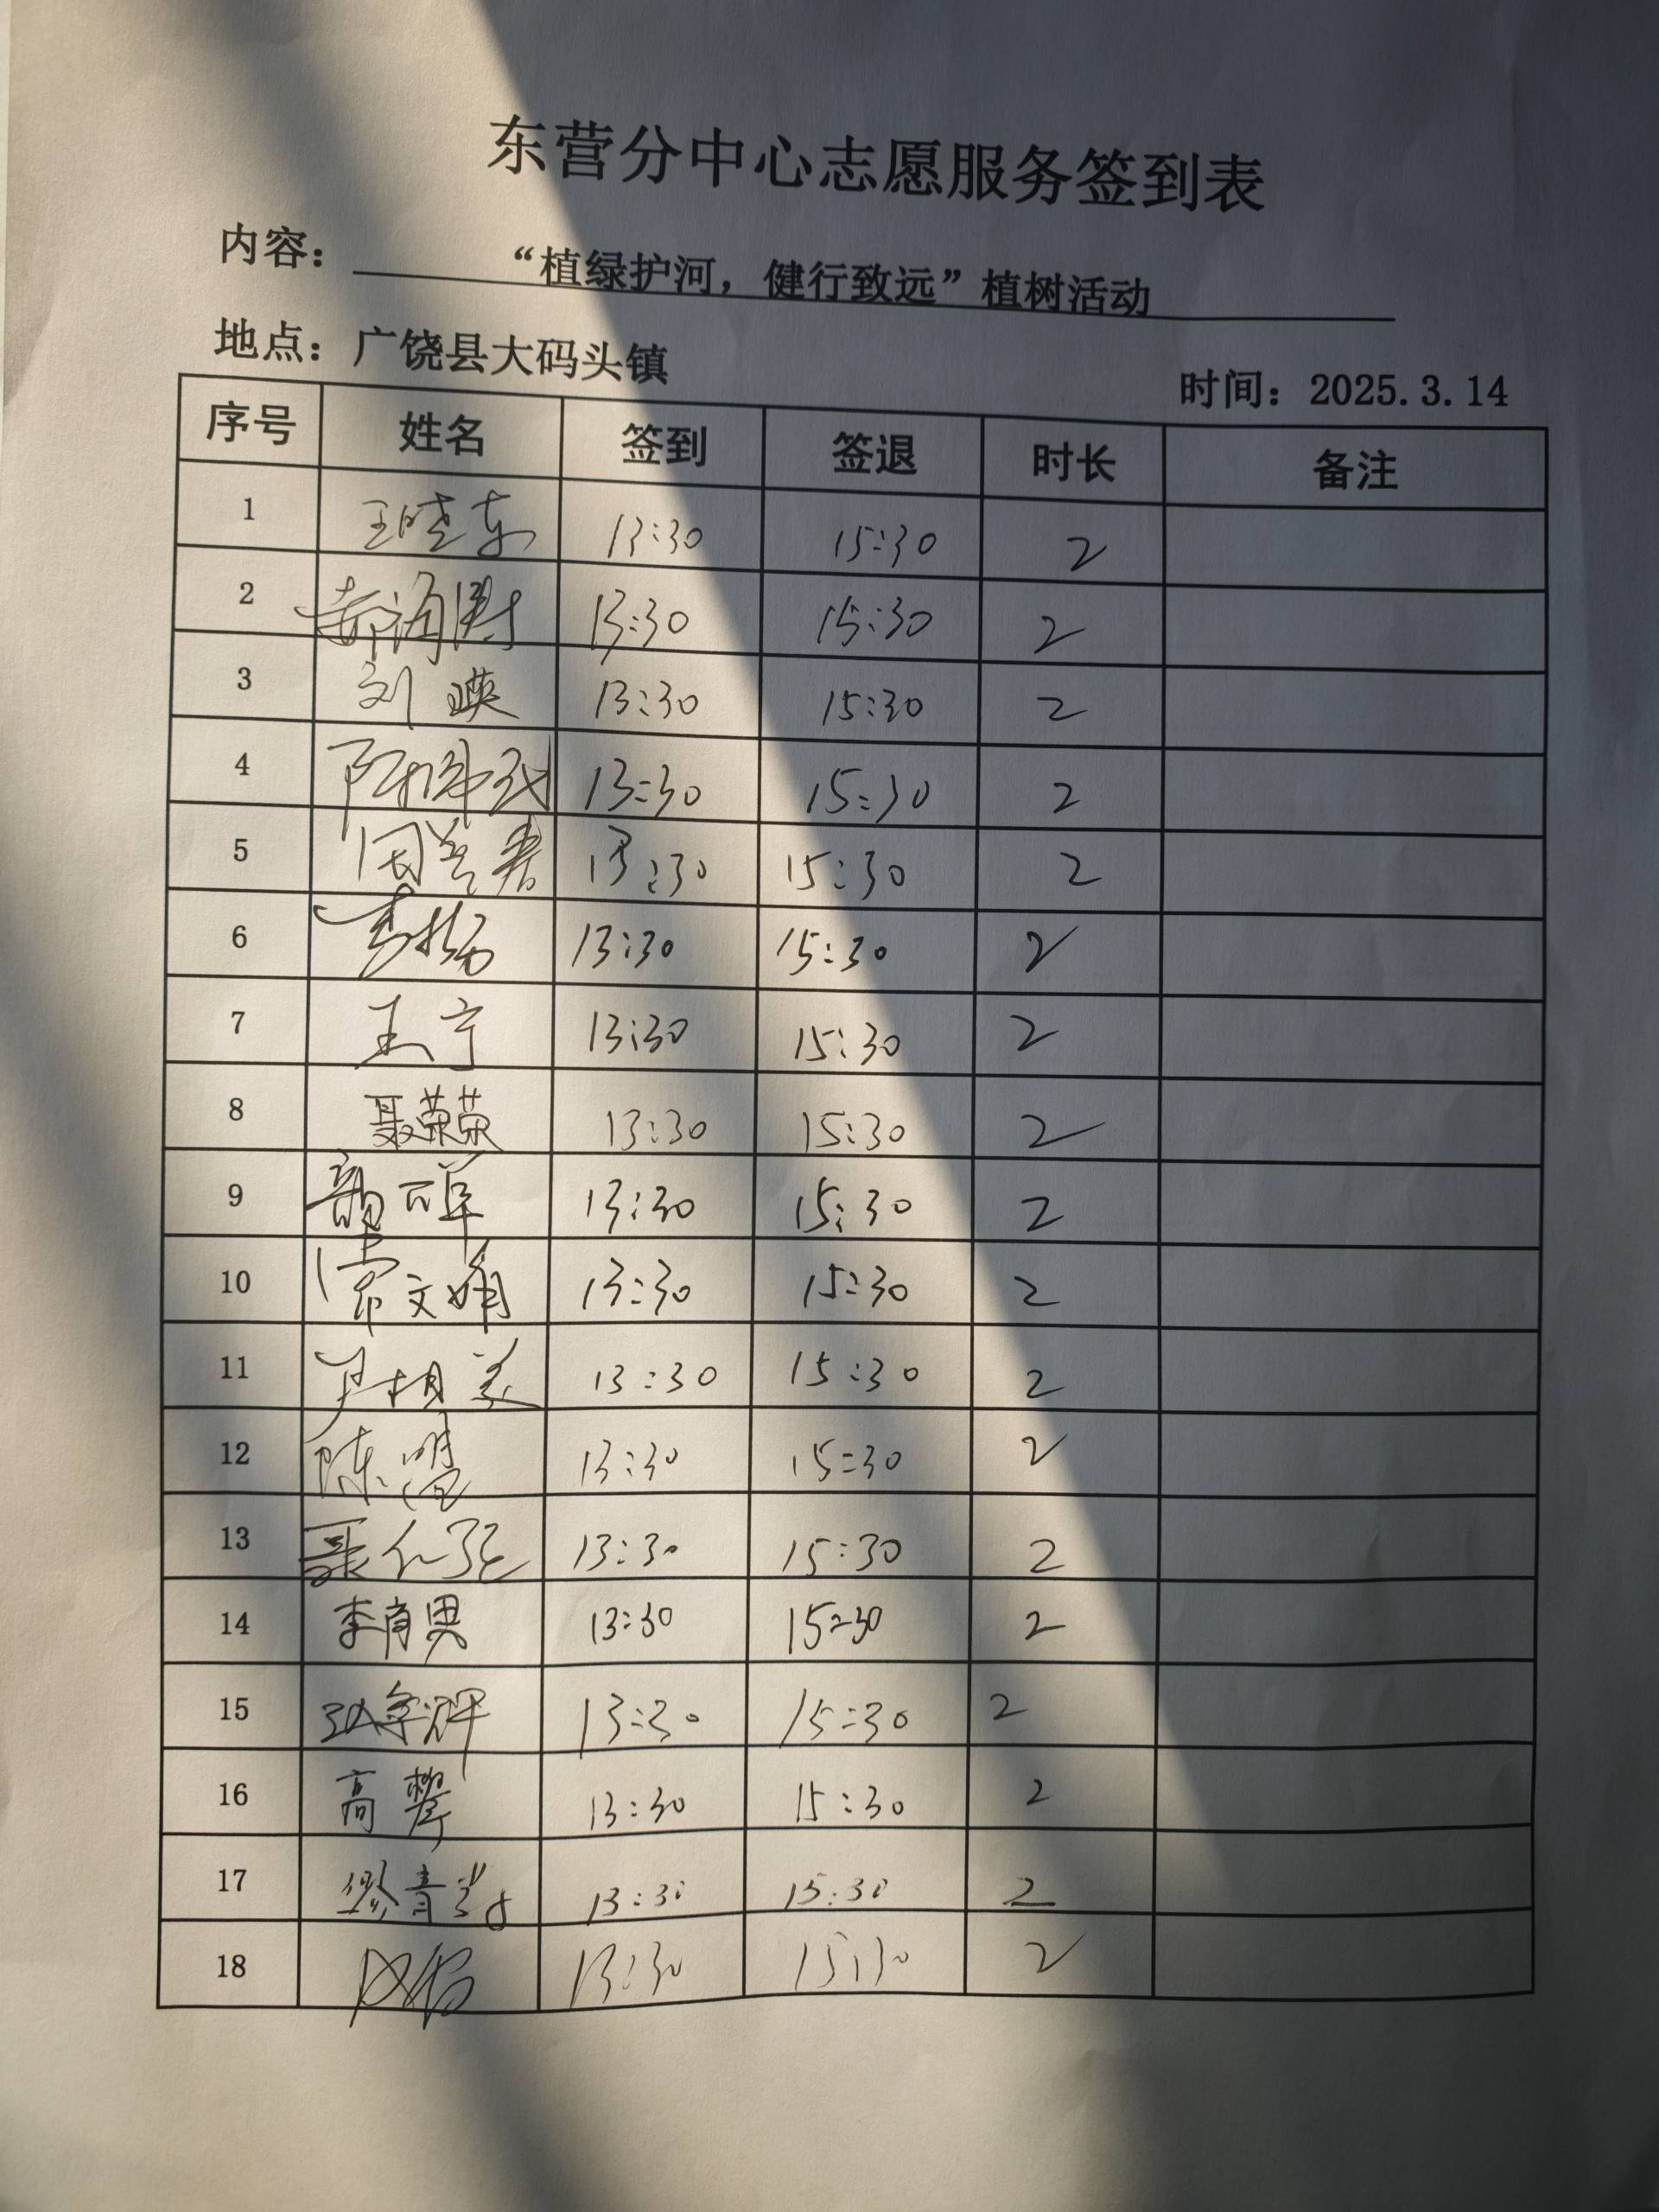 东营分中心志愿服务签到表
内容： “植绿护河，健行致远”植树活动
地点：广饶县大码头镇
时间：2025.3.14
序号 姓名 签到 签退 时长 备注
1 王晓东 13:30 15:30 2
2 13:30 15:30 2
3 刘瑛 13:30 15:30 2
4 13:30 15:30 2
5 13:30 15:30 2
6 13:30 15:30 2
7 王宁 13:30 15:30 2
8 聂荣荣 13:30 15:30 2
9 13:30 15:30 2
10 文娟 13:30 15:30 2
11 尹相美 13:30 15:30 2
12 陈 13:30 15:30 2
13 聂仁 13:30 15:30 2
14 李肖男 13:30 15:30 2
15 13:30 15:30 2
16 高 13:30 15:30 2
17 青 13:30 15:30 2
18 13:30 15:30 2